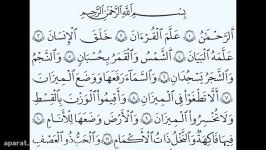 بِسْمِ اللَّهِ الرَّحْمَٰنِ الرَّحِيمِ
الرَّحْمَٰنُ ۝ عَلَّمَ الْقُرْءَانَ ۝ خَلَقَ الْإِنسَانَ ۝
عَلَّمَهُ الْبَيَانَ ۝ الشَّمْسُ وَالْقَمَرُ بِحُسْبَانٍ ۝ وَالنَّجْمُ
وَالشَّجَرُ يَسْجُدَانِ ۝ وَالسَّمَاءَ رَفَعَهَا وَوَضَعَ الْمِيزَانَ
۝ أَلَّا تَطْغَوْا فِي الْمِيزَانِ ۝ وَأَقِيمُوا الْوَزْنَ بِالْقِسْطِ
وَلَا تُخْسِرُوا الْمِيزَانَ ۝ وَالْأَرْضَ وَضَعَهَا لِلْأَنَامِ ۝
فِيهَا فَاكِهَةٌ وَالنَّخْلُ ذَاتُ الْأَكْمَامِ ۝ وَالْحَبُّ ذُو الْعَصْفِ
aparat.com